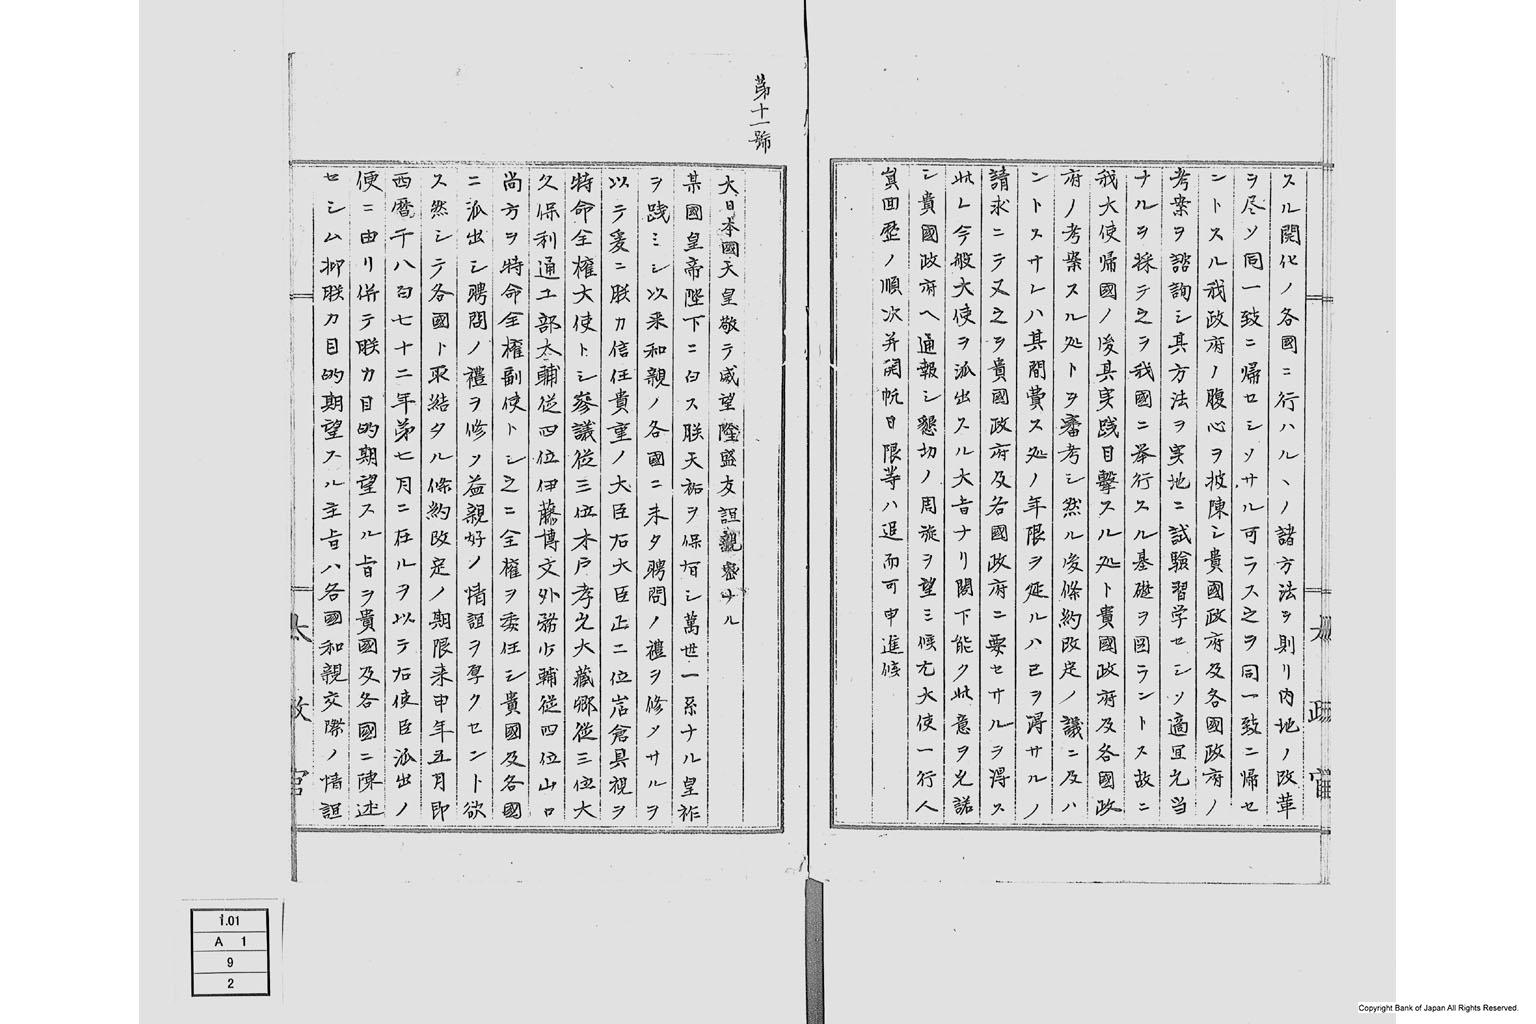 スル開化ノ各國ニ行ハルヽノ諸方法ヲ則リ内地ノ改革
ヲ尽シ同一致ニ帰セシメサル可ラス之ヲ同一致ニ帰セ
ントスル我政府ノ腹心ヲ披陳シ貴國政府及各國政府ノ
考案ヲ諮詢シ其方法ヲ実地ニ試驗習学セシメ適宜允当
ナルヲ採テ之ヲ我國ニ挙行スル基礎ヲ図ラントス故ニ
我大使帰國ノ後其実践目撃スル処ト貴國政府及各國政
府ノ考案スル処トヲ審考シ然ル後條約改定ノ議ニ及ハ
ントスサレハ其間費ス処ノ年限ヲ延ルハ已ヲ得サルノ
請求ニテ又之ヲ貴國政府及各國政府ニ要セサルヲ得ス
此レ今般大使ヲ派出スル大旨ナリ閣下能ク此意ヲ允諾
シ貴國政府ヘ通報シ懇切ノ周旋ヲ望ミ候尤大使一行人
員回歴ノ順次并開帆日限等ハ追而可申進候
太政官
第十一號
大日本國天皇敬テ威望隆盛友誼親密ナル
某國皇帝陛下ニ白ス朕天祐ヲ保有シ萬世一系ナル皇祚
ヲ踐ミシ以来和親ノ各國ニ未タ聘問ノ禮ヲ修メサルヲ
以テ爰ニ朕カ信任貴重ノ大臣右大臣正二位岩倉具視ヲ
特命全權大使トシ參議従三位木戸孝允大藏卿従三位大
久保利通工部大輔従四位伊藤博文外務少輔従四位山口
尚方ヲ特命全權副使トシ之ニ全權ヲ委任シ貴國及各國
ニ派出シ聘問ノ禮ヲ修メ益親好ノ情誼ヲ厚クセント欲
ス然シテ各國ト取結タル條約改定ノ期限来申年五月即
西暦千八百七十二年第七月ニ在ルヲ以テ右使臣派出ノ
便ニ由リ併テ朕カ目的期望スル旨ヲ貴國及各國ニ陳述
セシム抑朕カ目的期望スル主旨ハ各國和親交際ノ情誼
太政官
1.01
A 1
9
2
Copyright Bank of Japan All Rights Reserved.